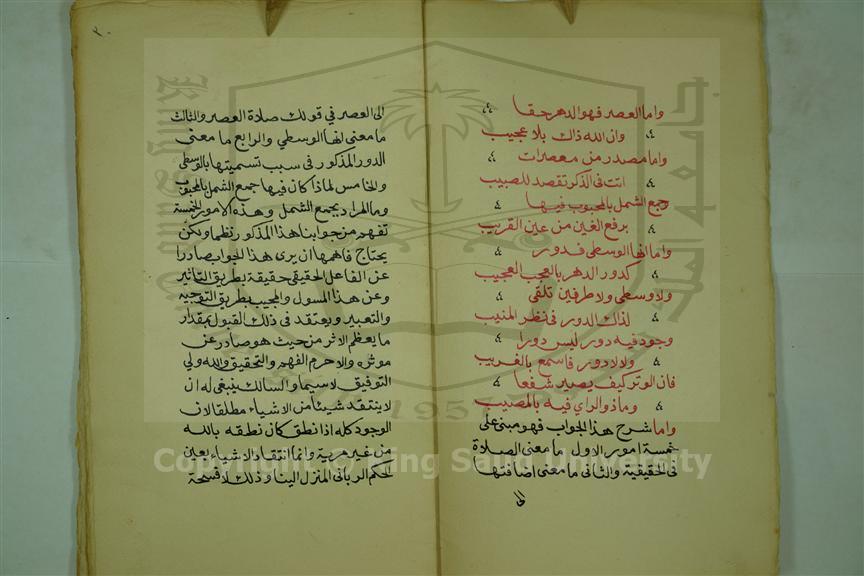 واما العصر فهو الدهر حقا
وان الله ذاك بلا عجيب
واما مصدر من معصرات
اتت فى الذكر تقصد للصبيب
وجمع الشمل بالمحبوب فيها
برفع الغين من عين القريب
واما انها الوسطى فدور
كدور الدهر بالعجب العجيب
ولا وسطى ولا طرفين تلقى
لذاك الدور فى نظر المنيب
وجود فيه دور ليس دورا
ولا لا دور فاسمع بالغريب
فان الوتر كيف يصير شفعا
وما ذو الراي فيه بالمصيب
واما شرح هذا الجواب فهو مبنى على
خمسة امور الاول ما معنى الصلاة
فى الحقيقية والثانى ما معنى اضافتها
الى
الى العصر في قولك صلاة العصر والثالث
ما معنى انها الوسطي والرابع ما معنى
الدور المذكور فى سبب تسميتها بالوسطى
والخامس لماذا كان فيها جمع الشمل بالمحبوب
وما المراد بجمع الشمل وهذه الامور الخمسة
تفهم من جوابنا هذا المذكور نظما ولكن
يحتاج فاهمها ان يرى هذا الجواب صادرا
عن الفاعل الحقيقى حقيقة بطريق التاثير
وعن هذا المسول والمجيب بطريق التوجيه
والتعبير ويعتقد فى ذلك القبول بمقدار
ما يعظم الاثر من حيث هو صادر عن
موثره والاحرم الفهم والتحقيق والله ولي
التوفيق لاسيما والسالك ينبغى له ان
لا ينتقد شيئا من الاشياء مطلقا لان
الوجود كله اذا نطق كان نطقه بالله
من غير مرية وانما انتقاد الاشياء بعين
الحكم الربانى المنزل الينا وذلك لا فسحة
Copyright © King Saud University
1957